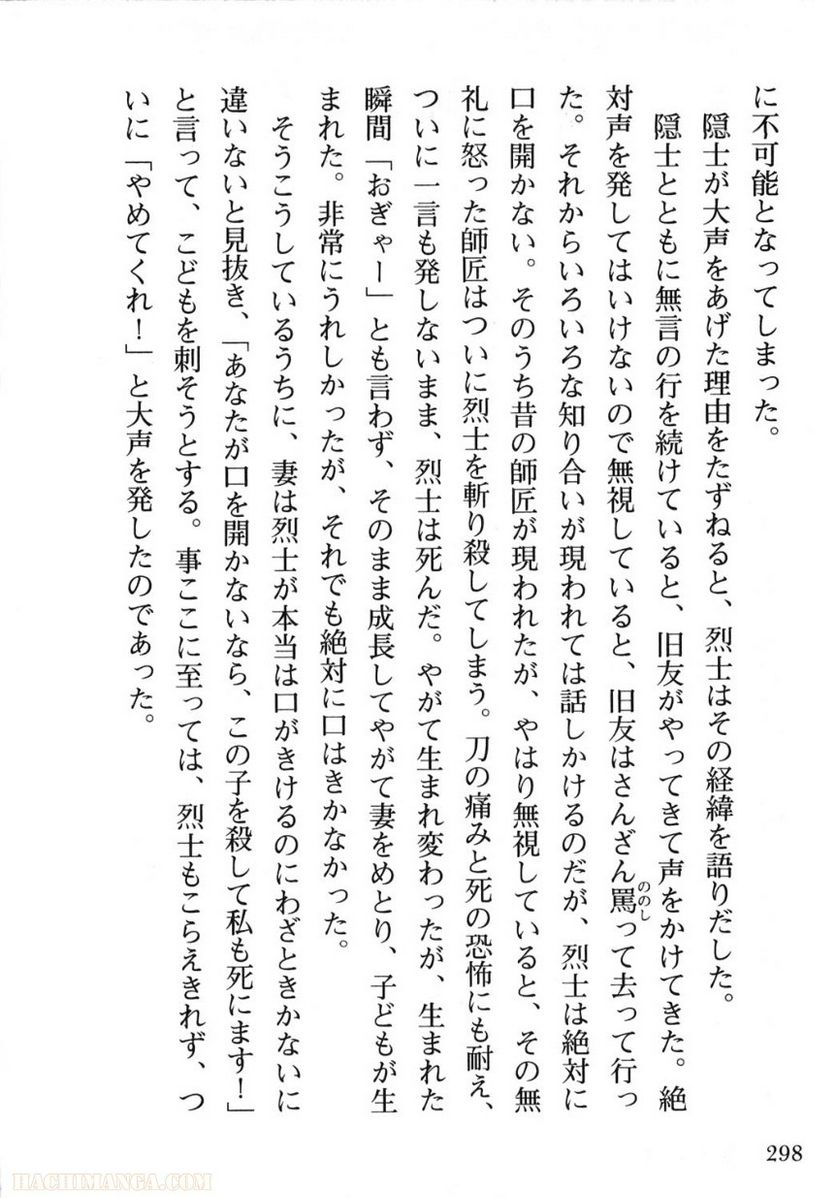 に不可能となってしまった。
隠士が大声をあげた理由をたずねると、烈士はその経緯を語りだした。
隠士とともに無言の行を続けていると、旧友がやってきて声をかけてきた。絶
対声を発してはいけないので無視していると、旧友はさんざん罵って去って行っ
ののし
た。それからいろいろな知り合いが現われては話しかけるのだが、烈士は絶対に
口を開かない。そのうち昔の師匠が現われたが、やはり無視していると、その無
礼に怒った師匠はついに烈士を斬り殺してしまう。刀の痛みと死の恐怖にも耐え、
ついに一言も発しないまま、烈士は死んだ。やがて生まれ変わったが、生まれた
瞬間「おぎゃー」とも言わず、そのまま成長してやがて妻をめとり、子どもが生
まれた。非常にうれしかったが、それでも絶対に口はきかなかった。
そうこうしているうちに、妻は烈士が本当は口がきけるのにわざときかないに
違いないと見抜き、「あなたが口を開かないなら、この子を殺して私も死にます！」
と言って、こどもを刺そうとする。事ここに至っては、烈士もこらえきれず、つ
いに「やめてくれ！」と大声を発したのであった。
298
HACHIMANGA.COM